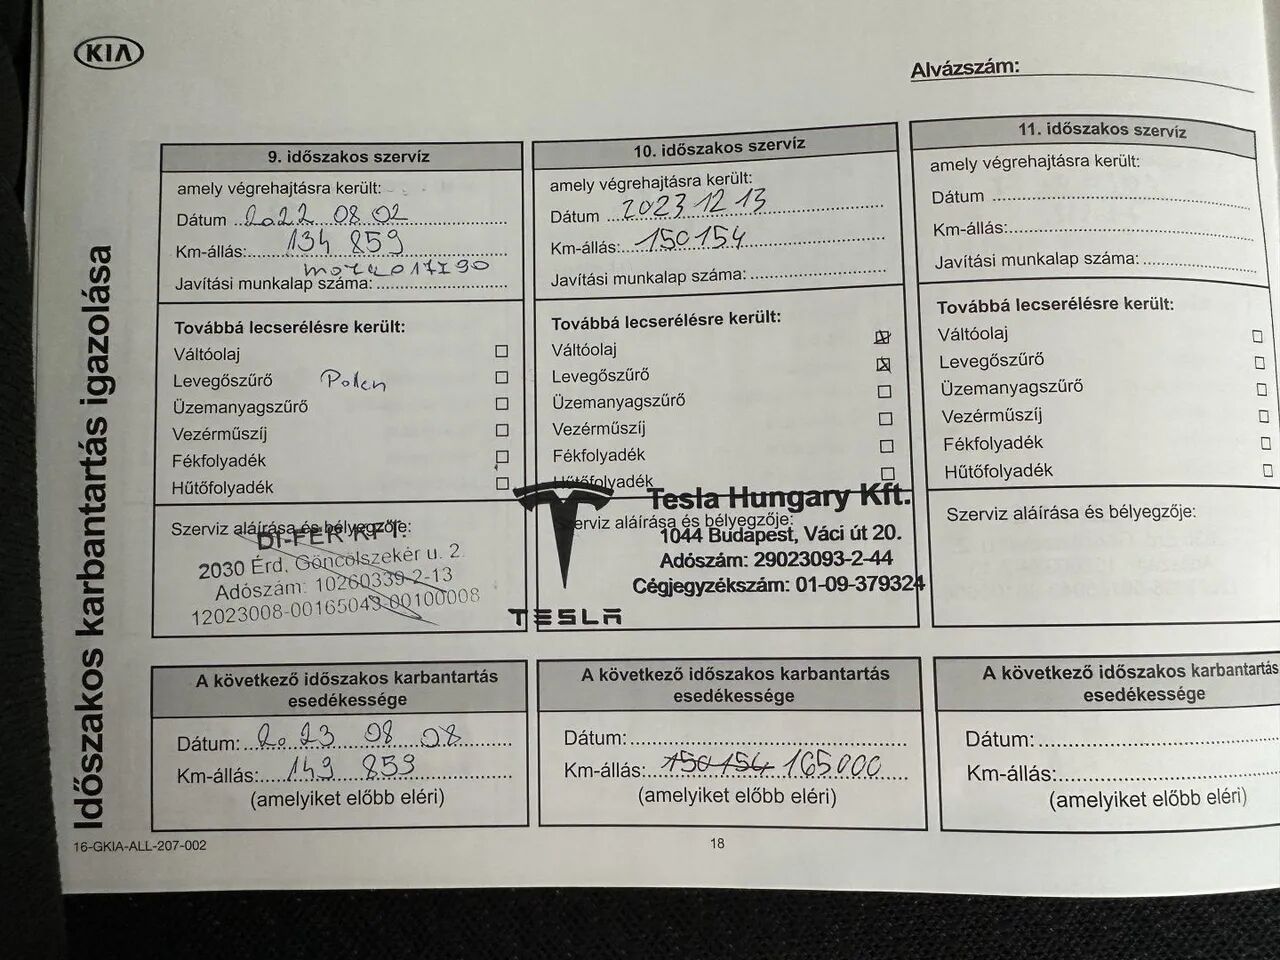 KIA
Alvázszám:
Időszakos karbantartás igazolása
9. időszakos szervíz
amely végrehajtásra került:
Dátum 2022 08 02
Km-állás: 134 859
Javítási munkalap száma:
Továbbá lecserélésre került:
Váltóolaj
Levegőszűrő Polen
Üzemanyagszűrő
Vezérműszíj
Fékfolyadék
Hűtőfolyadék
Szerviz aláírása és bélyegzője:
DI-FER KFT.
2030 Érd, Göncölszekér u. 2.
Adószám: 10260339-2-13
12023008-00165043-00100008
A következő időszakos karbantartás
esedékessége
Dátum: 2023 08 08
Km-állás: 149 859
(amelyiket előbb eléri)
10. időszakos szervíz
amely végrehajtásra került:
Dátum 2023 12 13
Km-állás: 150154
Javítási munkalap száma:
Továbbá lecserélésre került:
Váltóolaj
Levegőszűrő
Üzemanyagszűrő
Vezérműszíj
Fékfolyadék
Hűtőfolyadék
Szerviz aláírása és bélyegzője:
TESLA
Tesla Hungary Kft.
1044 Budapest, Váci út 20.
Adószám: 29023093-2-44
Cégjegyzékszám: 01-09-379324
A következő időszakos karbantartás
esedékessége
Dátum:
Km-állás: 150154 165000
(amelyiket előbb eléri)
11. időszakos szervíz
amely végrehajtásra került:
Dátum
Km-állás:
Javítási munkalap száma:
Továbbá lecserélésre került:
Váltóolaj
Levegőszűrő
Üzemanyagszűrő
Vezérműszíj
Fékfolyadék
Hűtőfolyadék
Szerviz aláírása és bélyegzője:
A következő időszakos karbantartás
esedékessége
Dátum:
Km-állás:
(amelyiket előbb eléri)
16-GKIA-ALL-207-002
18